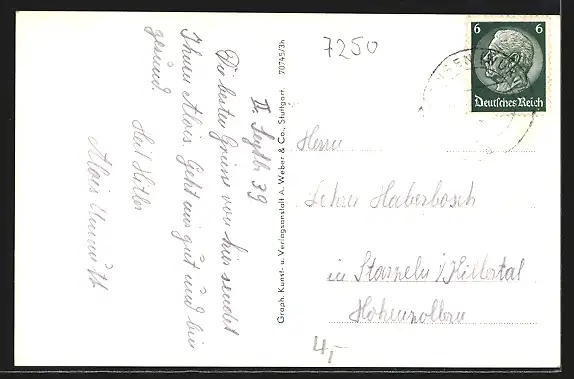 II. Septb. 39
Die besten Grüsse von hier sendet
Ihnen Alois. Geht mir gut und bin
gesund.
Heil Hitler
Alois
Graph. Kunst- u. Verlagsanstalt A. Weber & Co., Stuttgart. 70745/3h
7250
6 6
Deutsches Reich
Herrn
Lehrer Haberbosch
in Starzeln i/Killertal
Hohenzollern
4,-